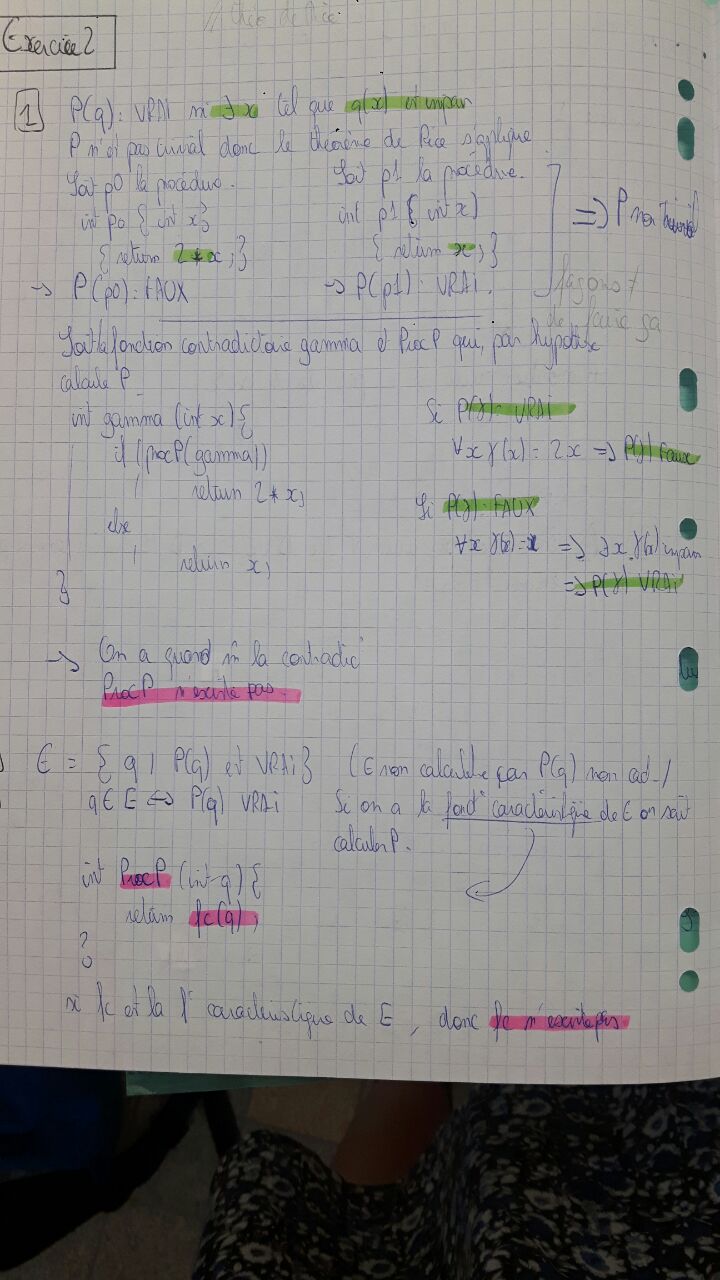 Exercice 2
1 P(q): VRAI ssi ∃ x tel que q(x) est impair
P n'est pas trivial donc le théorème de Rice s'applique
Soit p0 la procédure. Soit p1 la procédure.
int p0 { int x} int p1 { int x)
{ return 2*x ;} { return x ;} => P non trivial
-> P(p0): FAUX -> P(p1): VRAI.
façons ≠
de faire ça
Soit la fonction contradictoire gamma et ProcP qui, par hypothèse
calcule P
int gamma (int x) {
if (procP(gamma))
return 2*x;
else
return x;
}
Si P(γ): VRAI
∀x γ(x) = 2x => P(γ) Faux
Si P(γ): FAUX
∀x γ(x)=x => ∃x, γ(x) impair
=> P(γ) VRAI
-> On a quand m̂ la contradic°
ProcP n'existe pas.
E = { q | P(q) est VRAI} (E non calculable car P(q) non cal-)
q ∈ E <=> P(q) VRAI Si on a la fonct° caractéristique de E on sait
calculer P.
int ProcP (int q) {
return fc(q);
}
si fc est la f° caractéristique de E, donc fc n'existe pas